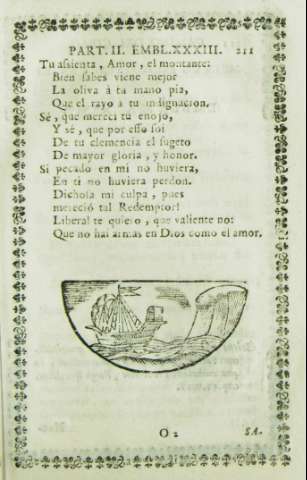 PART. II. EMBL. XXXIII. 211
Tu assienta, Amor, el montante:
Bien sabes viene mejor
La oliva à tu mano pia,
Que el rayo à tu indignacion.
Sé, que merecì tu enojo,
Y sé, que por esso soi
De tu clemencia el sugeto
De mayor gloria, y honor.
Si pecado en mi no huviera,
En ti no huviera perdon.
Dichosa mi culpa, pues
mereciò tal Redemptor!
Liberal te quiero, que valiente no:
Que no hai armas en Dios como el amor.
O 2 SA-